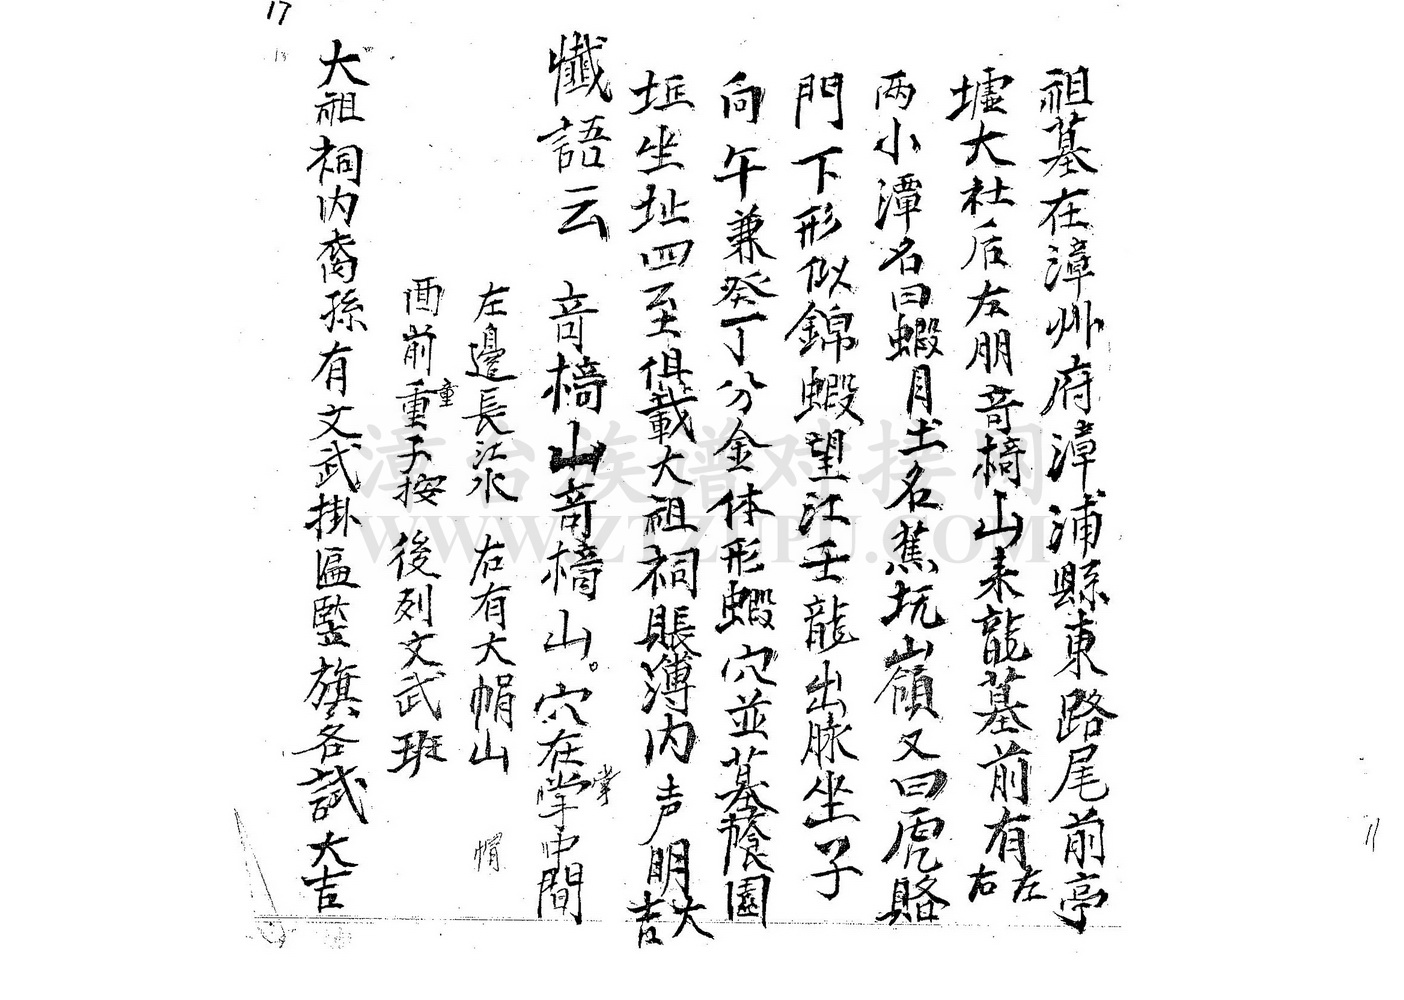 17
祖墓在漳州府漳浦縣東路尾前亭
墟大社后左朋竒檹山来龍墓前有左右
两小潭名曰蝦月土名蕉坑山嶺又曰虎賂
門下形似錦蝦望江壬龍出脉坐子
向午兼癸丁分金体形蝦穴並墓蔭園
坵坐址四至俱載大祖祠賬簿内声明大吉
懺語云 竒檹山竒檹山。穴在掌中間
掌
左邊長江水 右有大帽山
帽
面前重子按 後列文武班
童
大祖祠内裔孫有文武掛匾竪旗各試大吉
11
漳台族谱对接网
WWW.ZTZUPU.COM